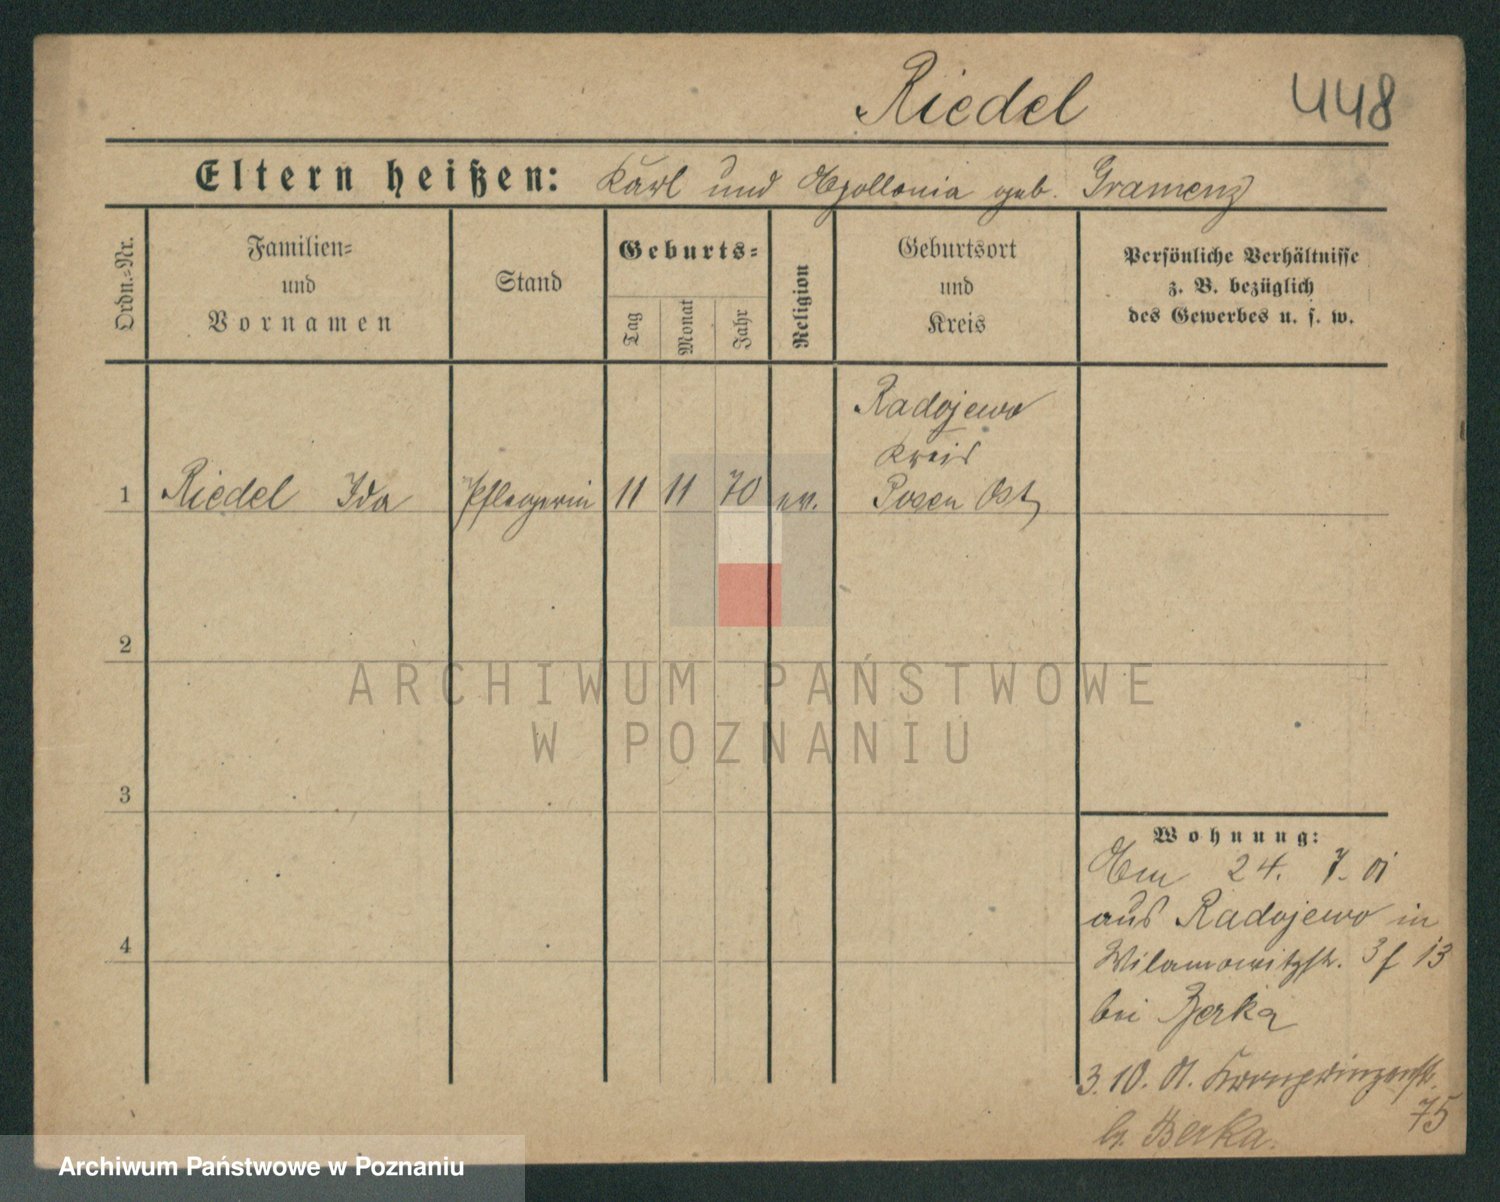 Riedel 448
Eltern heißen: Karl und Apollonia geb. Gramenz
Ordn.-Nr.
Familien-
und
Vornamen
Stand
Geburts-
Tag
Monat
Jahr
Religion
Geburtsort
und
Kreis
Persönliche Verhältnisse
z. B. bezüglich
des Gewerbes u. s. w.
Radojewo
Kreis
1 Riedel Ida Pflegerin 11 11 70 ev. Posen Ost
2
3
4
Wohnung:
Am 24. 7. 01
aus Radojewo in
Wilamowitzstr. 3 f 13
bei Berka
3. 10. 01. Kronprinzenstr.
75
b. Berka.
ARCHIWUM PAŃSTWOWE
W POZNANIU
Archiwum Państwowe w Poznaniu